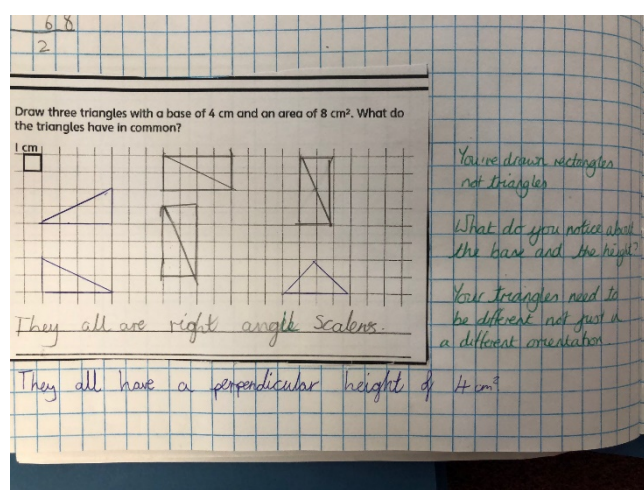 6 8
2
Draw three triangles with a base of 4 cm and an area of 8 cm². What do
the triangles have in common?
1 cm
You've drawn rectangles
not triangles
What do you notice about
the base and the height?
Your triangles need to
be different not just in
a different orientation.
They all are right angle Scalens.
They all have a perpendicular height of 4cm²